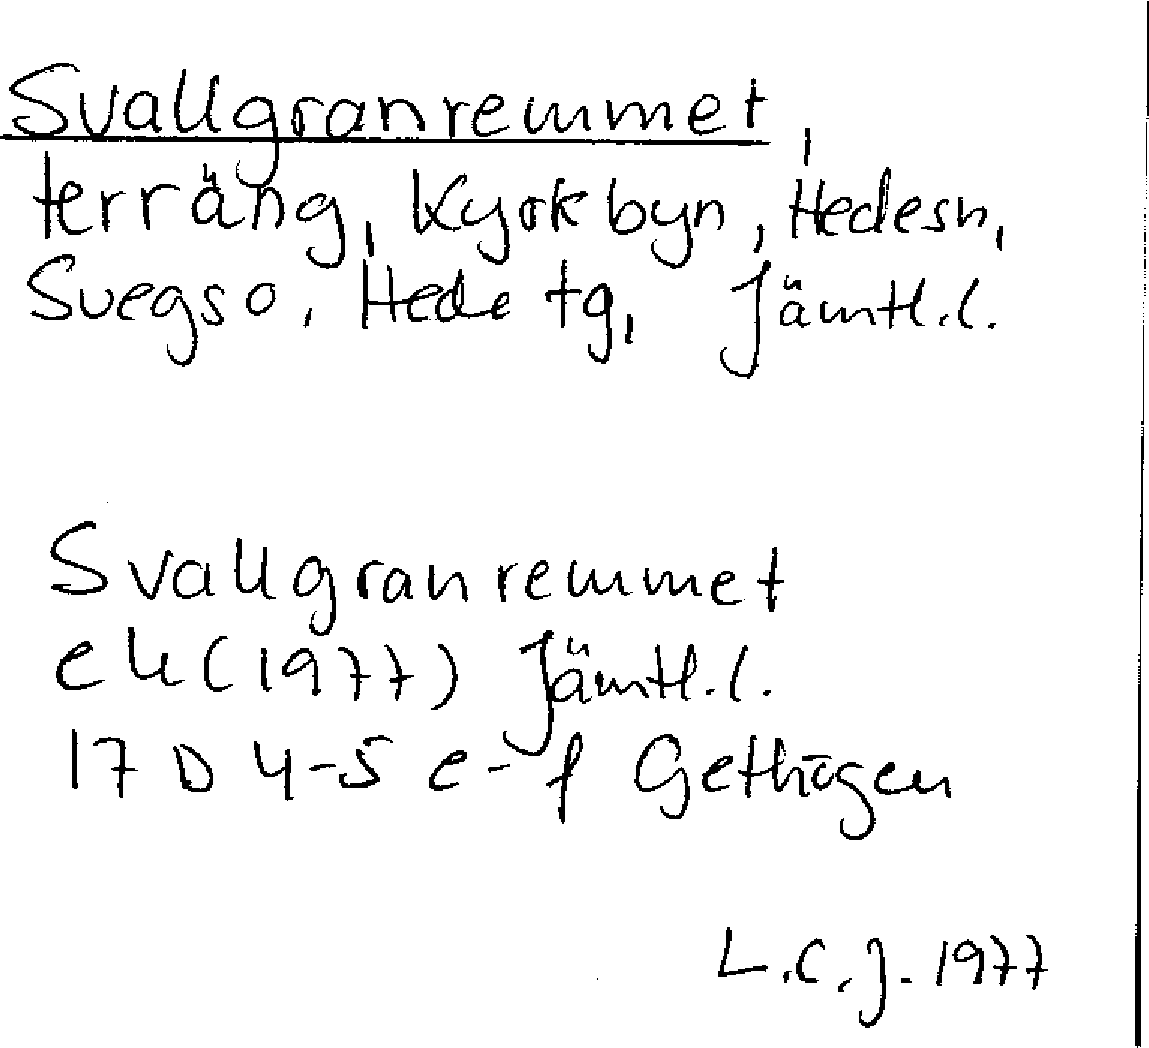 Svallgranremmet,
terräng, Kyrkbyn, Hedesn,
Svegso, Hede tg, Jämtl.l.
Svallgranremmet
ek (1977) Jämtl.l.
17 D 4-5 e-f Gethögen
L.C.J. 1977